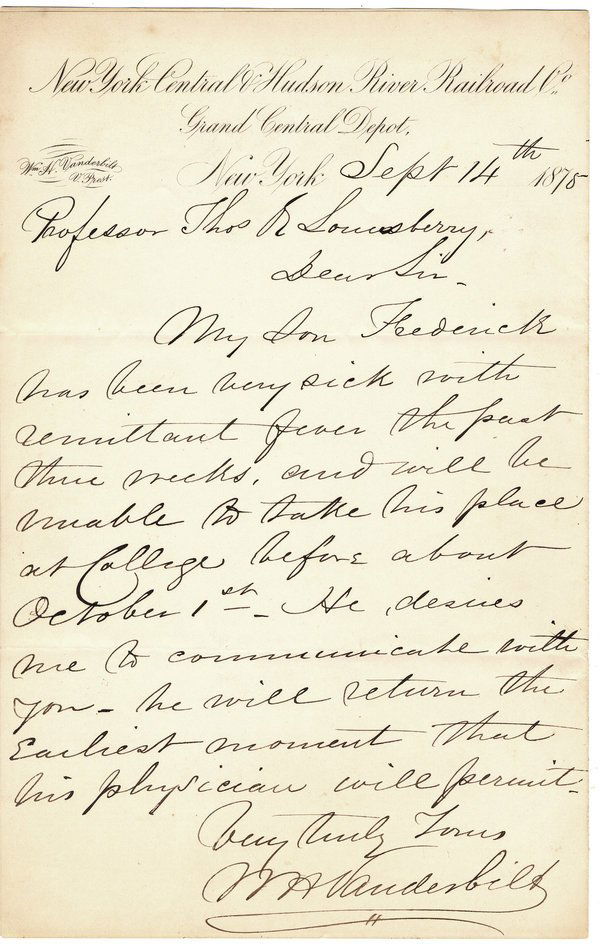 New York Central & Hudson River Railroad Co.
Grand Central Depot,
Wm. H. Vanderbilt
V. Prest.
New York Sept 14th 1875
Professor Thos R Lounsberry,
Dear Sir -
My Son Frederick
has been very sick with
remittant fever the past
three weeks, and will be
unable to take his place
at College before about
October 1st - He desires
me to communicate with
you - he will return the
Earliest moment that
his physician will permit -
Very truly Yours
W H Vanderbilt